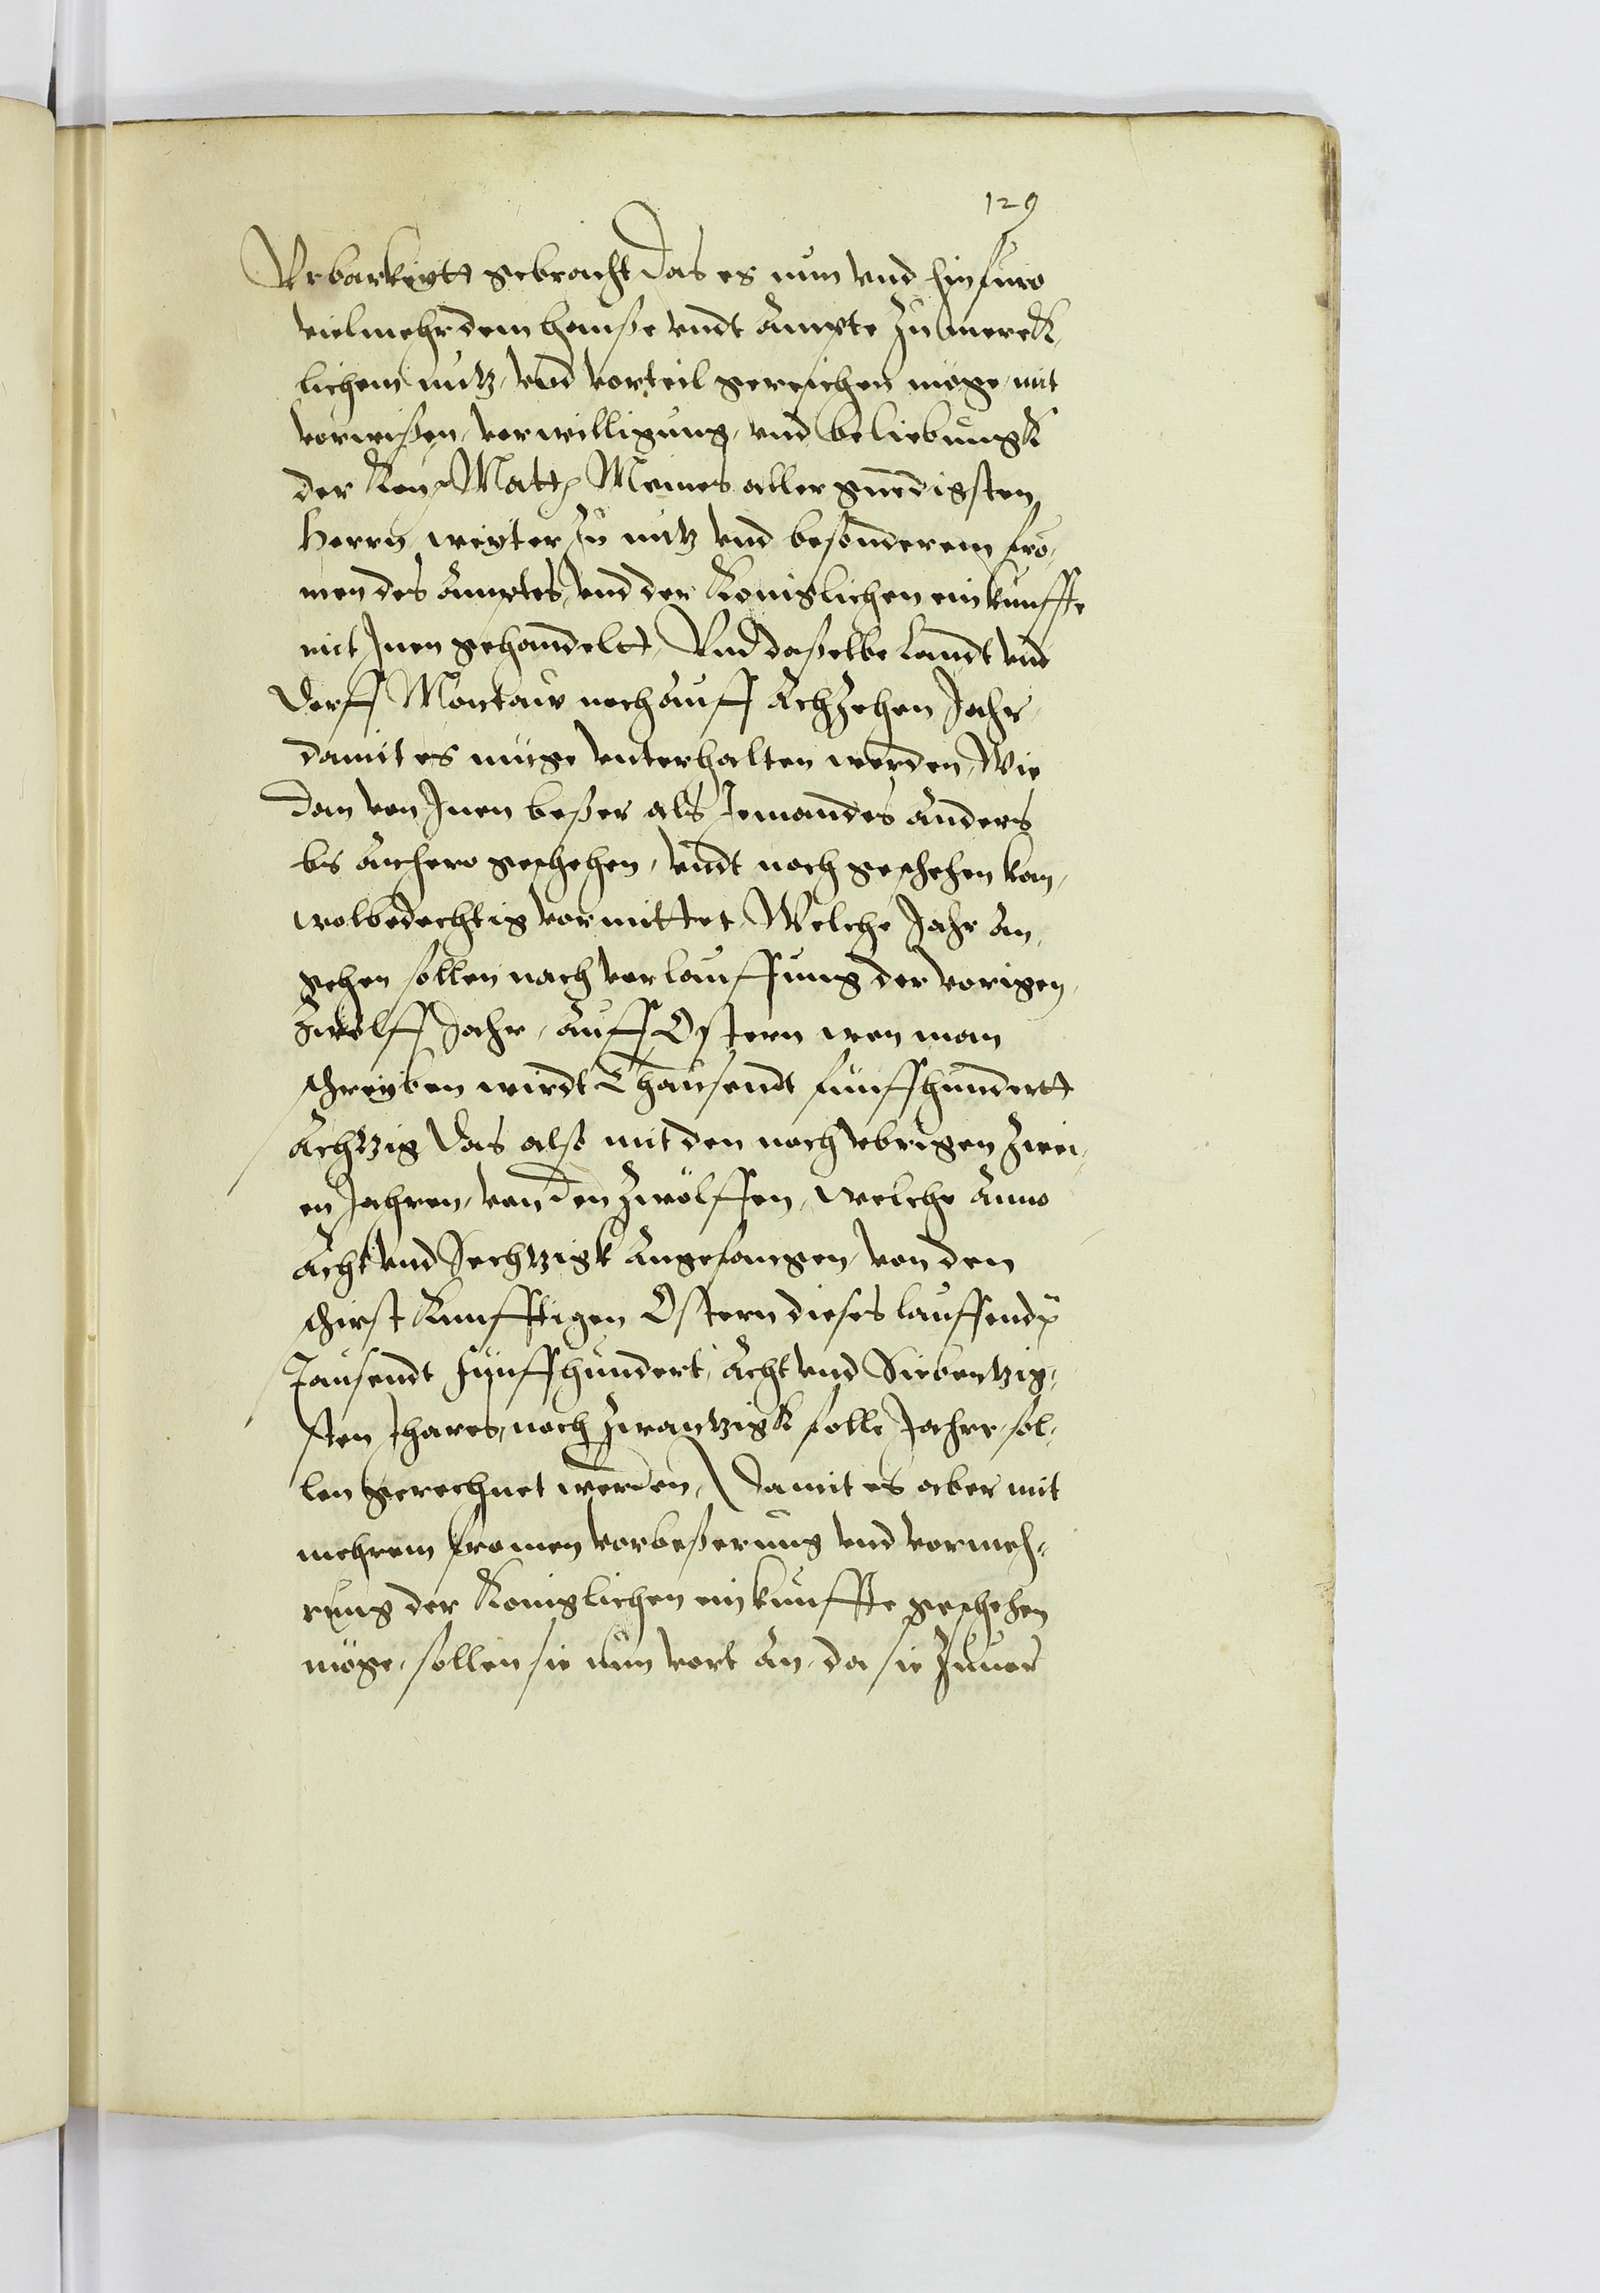 129
Vrbarkeytt gebracht Das es nun vnd hinfuro
vielmehr dem hauße vndt Ampte zu merck,
lichem nutz, vnd vorteil gereichen möge, mit
vorwißen, vorwilligung, vnd beliebungk
der Kon: Matt: Meines aller gnedigsten
Herrn weyter zu nutz vnd besonderem fro,
men des Amptes, vnd der Koniglichen einkunffte
mit Inen gehandeltt, Vnd daßelbe Landt vnd
Dorff Montaw noch auff Achzehen Jahr,
damit es müge vnterhalten werden, Wie
Dan von Inen beßer als Jemandes anders
bis anhero geschehen, vndt noch geschehen kan,
wolbedechtig vormittet, Welche Jahr An,
gehen sollen nach vorlauffung der vorigen,
Zwölff Jahr, Auff Ostern wen man
schreyben wirdt Thausendt funffhundertt
Achtzig Das also mit den noch vbrigen zwei,
en Jahren, von den Zwölffen, welche Anno
Acht vnd Sechtzigk Angefangen, von den
schirst kunfftigen Ostern dieses lauffend:
Tausendt funffhundert, Acht vnd Siebentzig,
sten Jhares, noch Zwantzigk folle Jahre, sol,
len gerechnet werden, Damit es aber mit
mehrem fromen vorbeßerung vnd vormeh,
rung der Koniglichen einkunffte geschehen
möge, sollen sie nun vort An, da sie zuuor